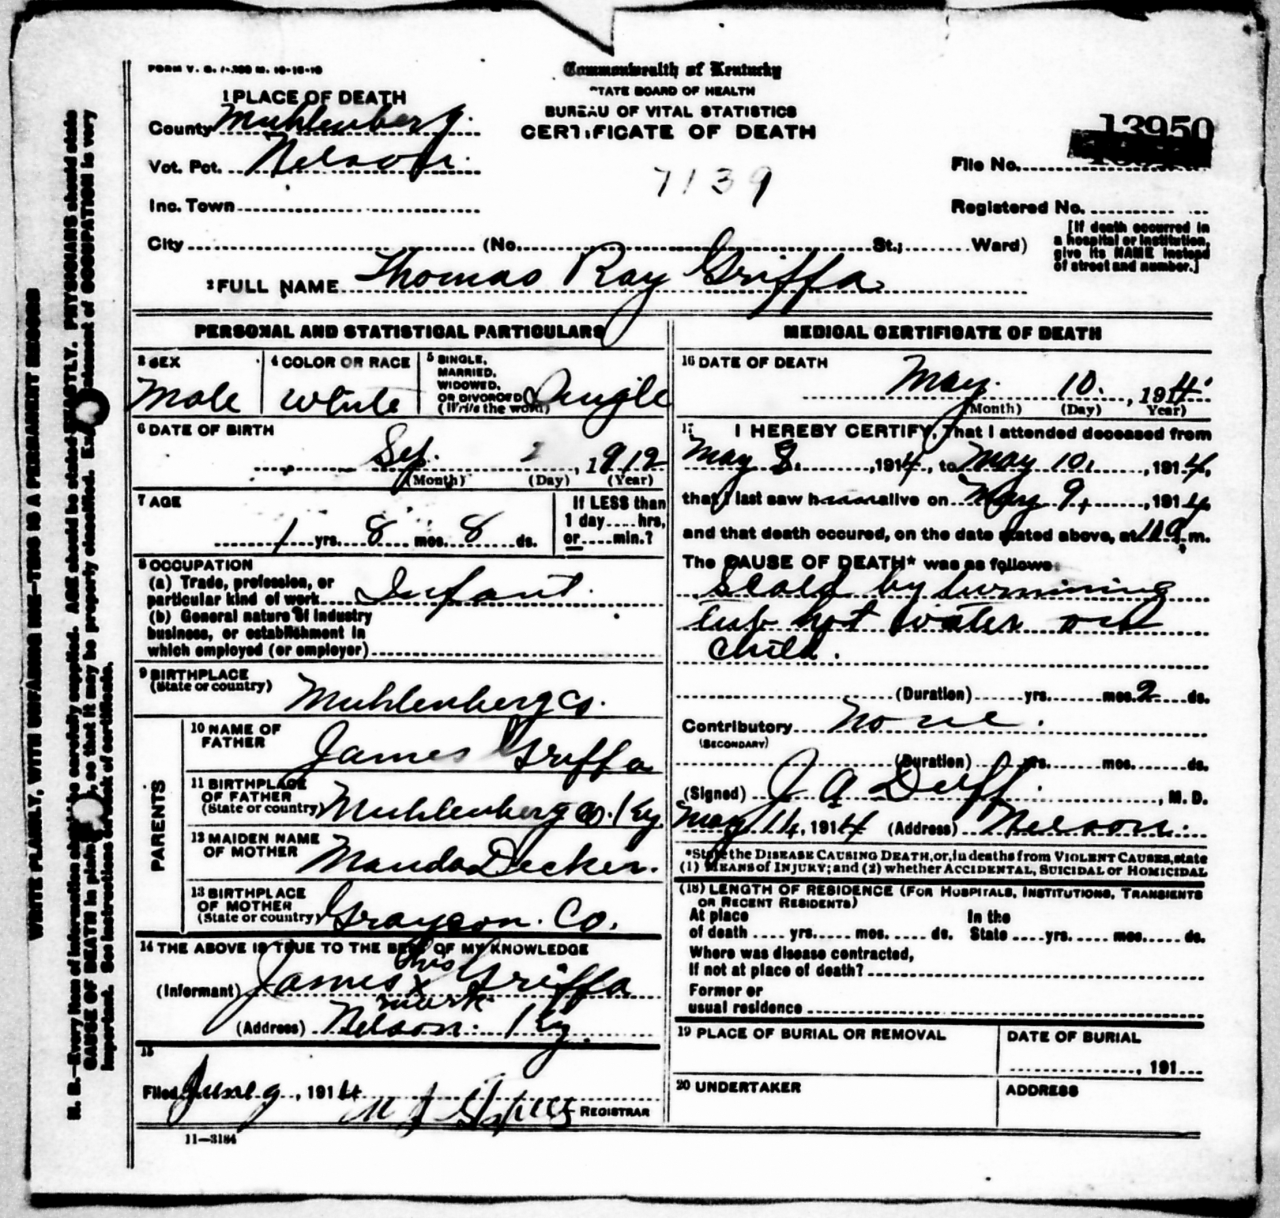 FORM V. S. 1-300 M. 10-16-10
Commonwealth of Kentucky
STATE BOARD OF HEALTH
BUREAU OF VITAL STATISTICS
CERTIFICATE OF DEATH
7139
1 PLACE OF DEATH
County Muhlenberg.
Vot. Pct. Nelson.
Inc. Town
City (No. St.; Ward)
13950
File No.
Registered No.
[If death occurred in
a hospital or institution,
give its NAME instead
of street and number.]
2 FULL NAME Thomas Ray Griffa
PERSONAL AND STATISTICAL PARTICULARS
3 SEX
Male
4 COLOR OR RACE
White
5 SINGLE,
MARRIED,
WIDOWED,
OR DIVORCED
(Write the word)
Single
6 DATE OF BIRTH
Sep. 2, 1912
(Month) (Day) (Year)
7 AGE
1 yrs. 8 mos. 8 ds.
If LESS than
1 day .... hrs,
or .... min.?
8 OCCUPATION
(a) Trade, profession, or
particular kind of work Infant.
(b) General nature of industry
business, or establishment in
which employed (or employer)
9 BIRTHPLACE
(State or country)
Muhlenberg Co.
PARENTS
10 NAME OF
FATHER
James Griffa
11 BIRTHPLACE
OF FATHER
(State or country) Muhlenberg Co. Ky
12 MAIDEN NAME
OF MOTHER
Manda Decker.
13 BIRTHPLACE
OF MOTHER
(State or country) Grayson Co.
14 THE ABOVE IS TRUE TO THE BEST OF MY KNOWLEDGE
his
(Informant) James x Griffa
mark
(Address) Nelson. Ky.
15
Filed June 9, 1914
REGISTRAR
11—3184
MEDICAL CERTIFICATE OF DEATH
16 DATE OF DEATH
May. 10., 1914
(Month) (Day) Year)
17 I HEREBY CERTIFY, That I attended deceased from
May 8., 1914, to May 10., 1914,
that I last saw h alive on May 9, 1914
and that death occured, on the date stated above, at m.
The CAUSE OF DEATH* was as follows:
Scald by turnning
tub hot water on
child.
(Duration) yrs. mos. 2 ds.
Contributory None.
(SECONDARY)
(Duration) yrs. mos. ds.
(Signed) J A Duff. , M. D.
May 14, 1914 (Address) Nelson.
*State the DISEASE CAUSING DEATH, or, in deaths from VIOLENT CAUSES, state
(1) MEANS of INJURY; and (2) whether ACCIDENTAL, SUICIDAL or HOMICIDAL
(18) LENGTH OF RESIDENCE (FOR HOSPITALS, INSTITUTIONS, TRANSIENTS
OR RECENT RESIDENTS)
At place In the
of death .... yrs. .... mos. .... ds. State .... yrs. .... mos. .... ds.
Where was disease contracted,
if not at place of death?
Former or
usual residence
19 PLACE OF BURIAL OR REMOVAL
DATE OF BURIAL
, 191
20 UNDERTAKER
ADDRESS
WRITE PLAINLY, WITH UNFADING INK—THIS IS A PERMANENT RECORD
N. B.—Every item of information should be carefully supplied. AGE should be stated EXACTLY. PHYSICIANS should state
CAUSE OF DEATH in plain , so that it may be properly classified. Exact statement of OCCUPATION is very
important. See instructions on back of certificate.